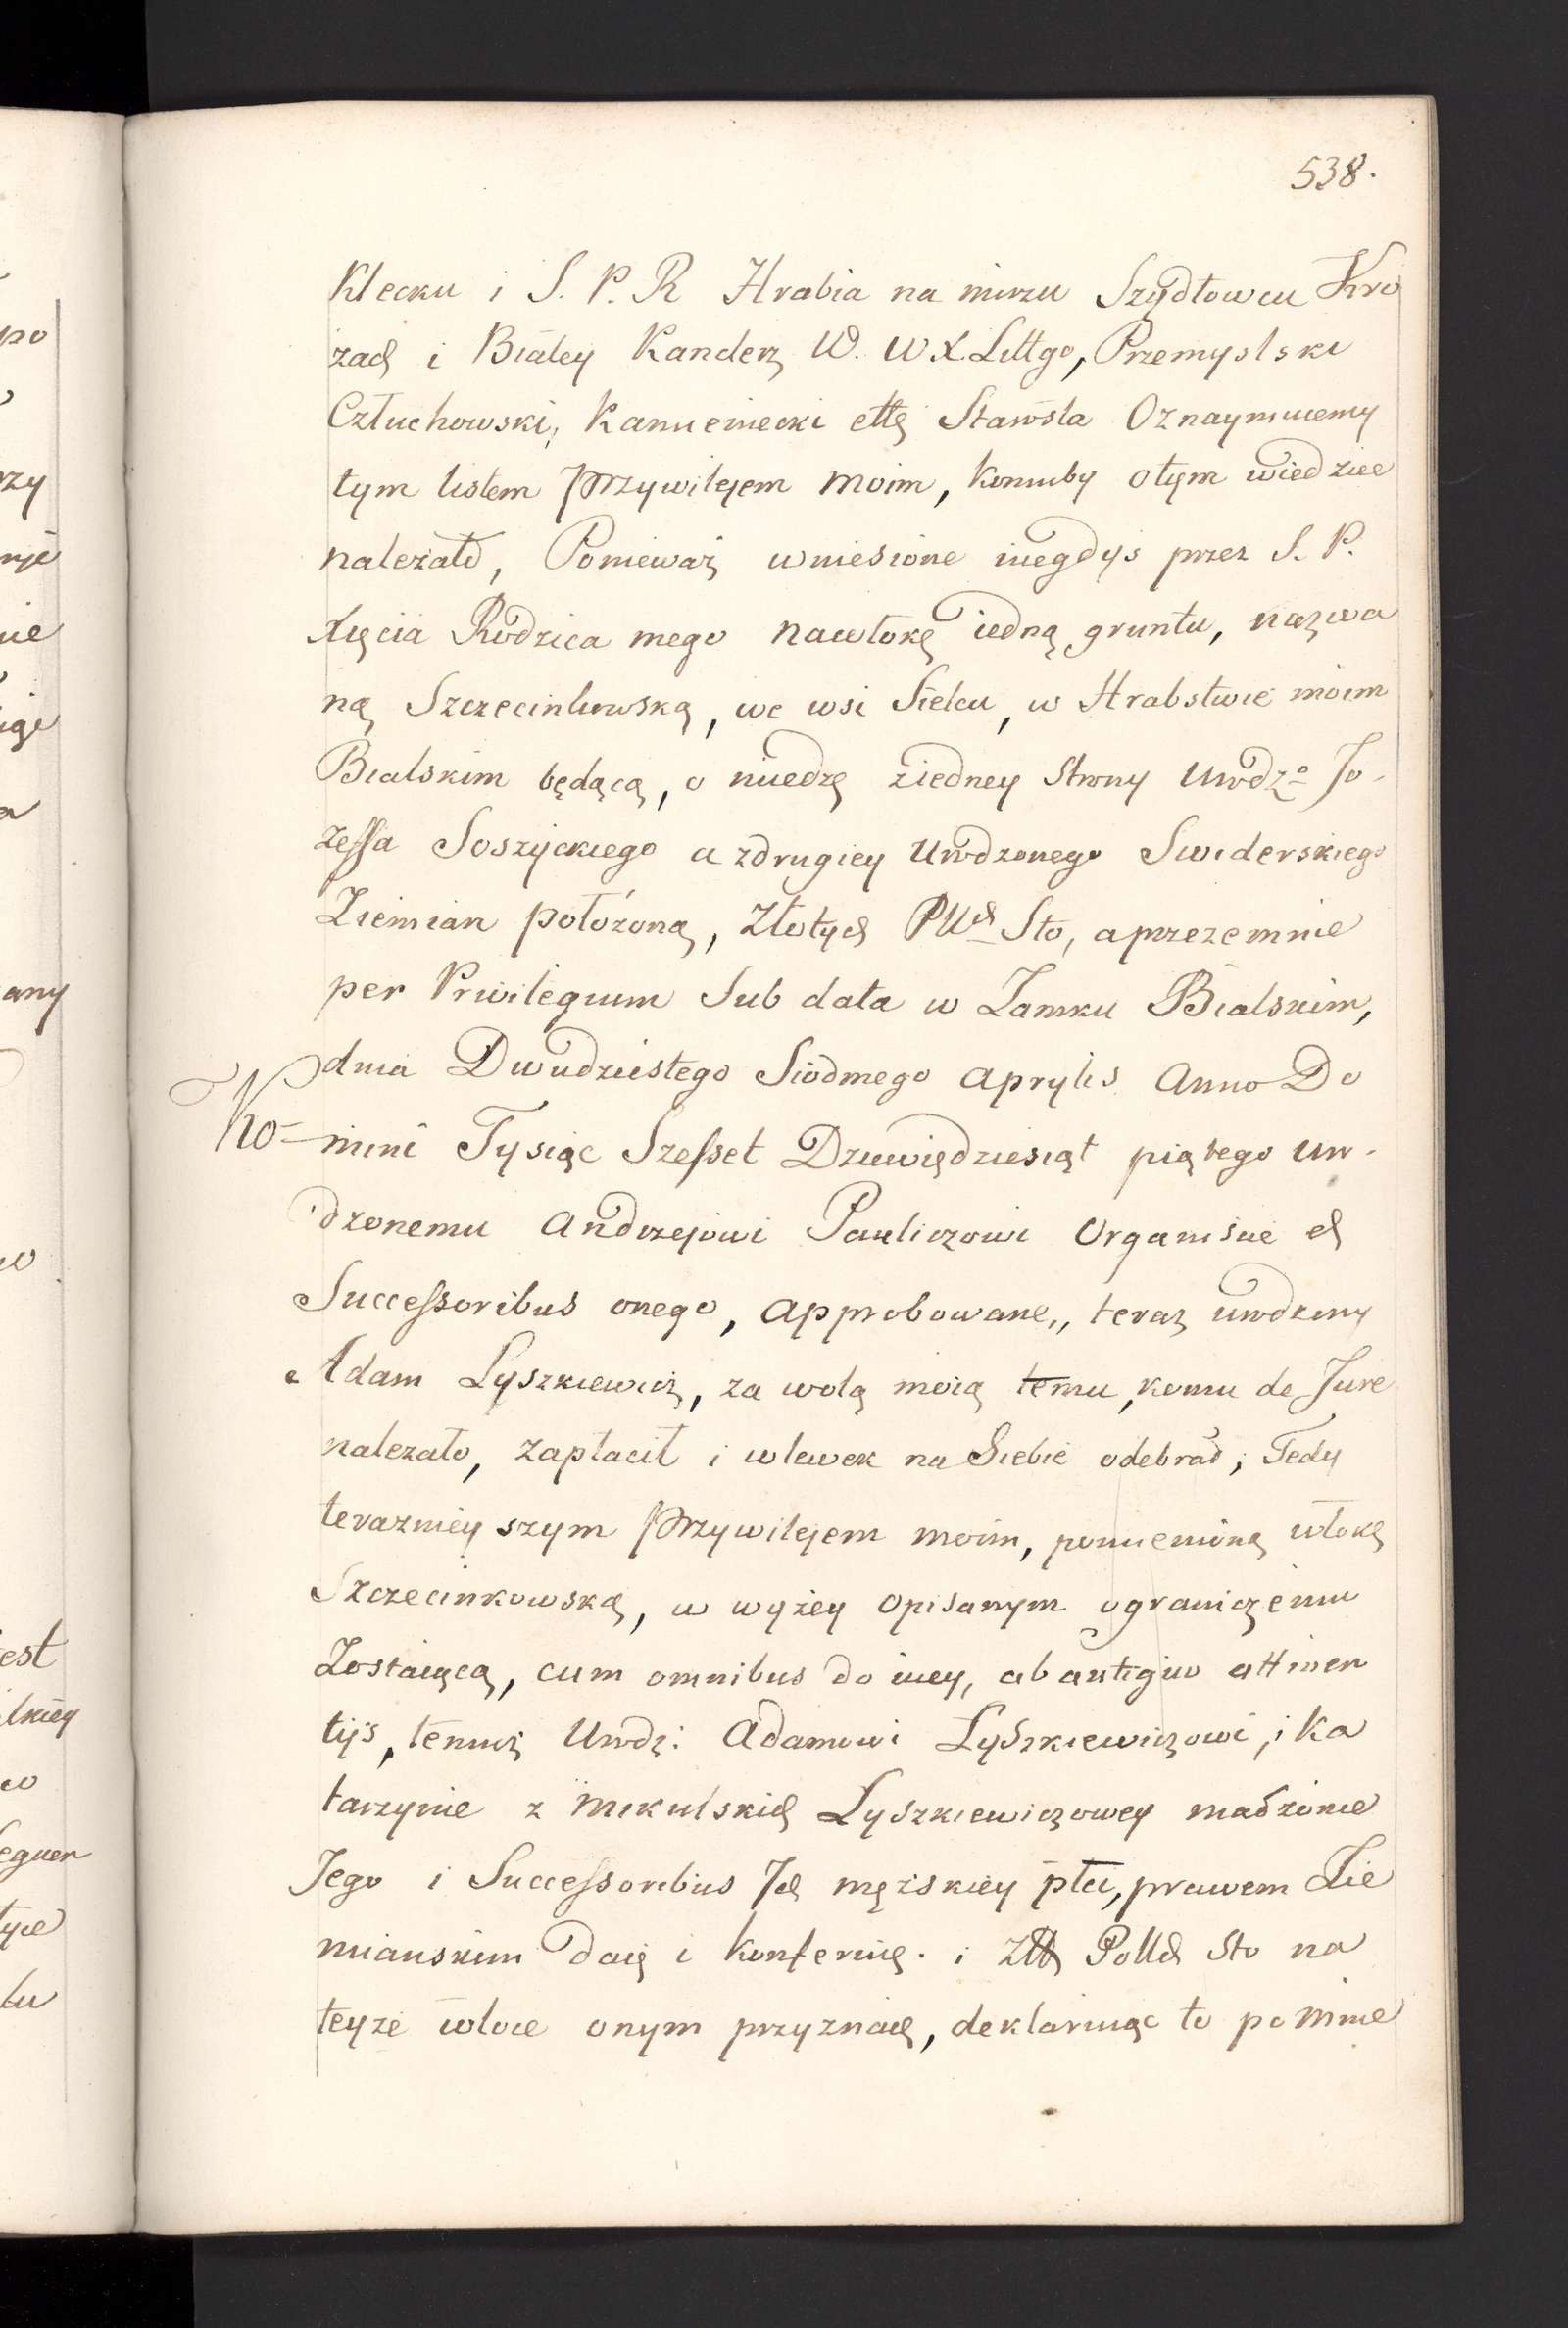 538.
Klecku i S. P. R Hrabia na mirzu Szydłowcu Kro
zach i Bialey Kanclerz W. W X. Littgo, Przemyslski
Człuchowski, Kamieniecki ettc Stawsta Oznaymuiemy
tym listem przywilejem moim, komuby otym wiedziec
nalezało, Ponieważ wniesione niegdyś przez S. P.
Xięcia Rodzica mego nawłokę iedną gruntu, nazwa
ną Szczecinkowską, we wsi Sielcu, w Hrabstwie moim
Bialskim będącą, o miedzę ziedney strony Urodzo Jo-
zeffa Soszyckiego a zdrugiey Urodzonego Swiderskiego
Ziemian położoną, Złotych Pllch Sto, aprzezemnie
per Privilegium Sub data w Zamku Bialskim,
dnia Dwudziestego Siodmego Aprylis Anno Do
mini Tysiąc Szesset Dziewiędziesiąt piątego Uro-
dzonemu Andrzejowi Pauliczowi Organiscie et
Successoribus onego, approbowane,, teraz urodzony
Adam Lyszkiewicz, za wolą moią temu, komu de Jure
nalezało, zapłacił i wlewek na Siebie odebrał; Tedy
teraznieyszym przywilejem moim, pomienioną włokę
Szczecinkowską, w wyżey opisanym ograniczeniu
Zostaiącą, cum omnibus do niey, ab antiquo attinen
tijs, temuż Urodz: Adamowi Lyszkiewiczowi, i Ka
tarzynie z Mikulskich Lyszkiewiczowey małżonce
Jego i Successoribus Jch męzskiey płci, prawem Zie
mianskim daię i konferuię. i Złł Pollch Sto na
teyze włoce onym przyznaię, deklaruiąc to po mnie